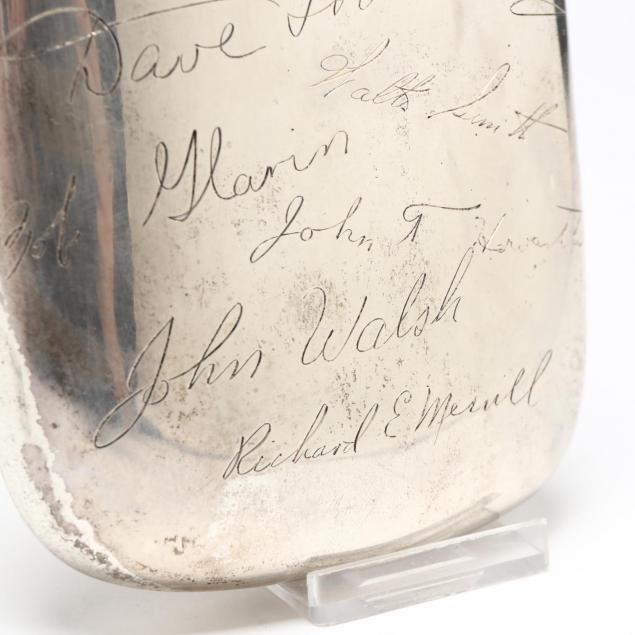 Dave
Walter Smith
Bob Glavin
John F Horvath
John Walsh
Richard E Merrill